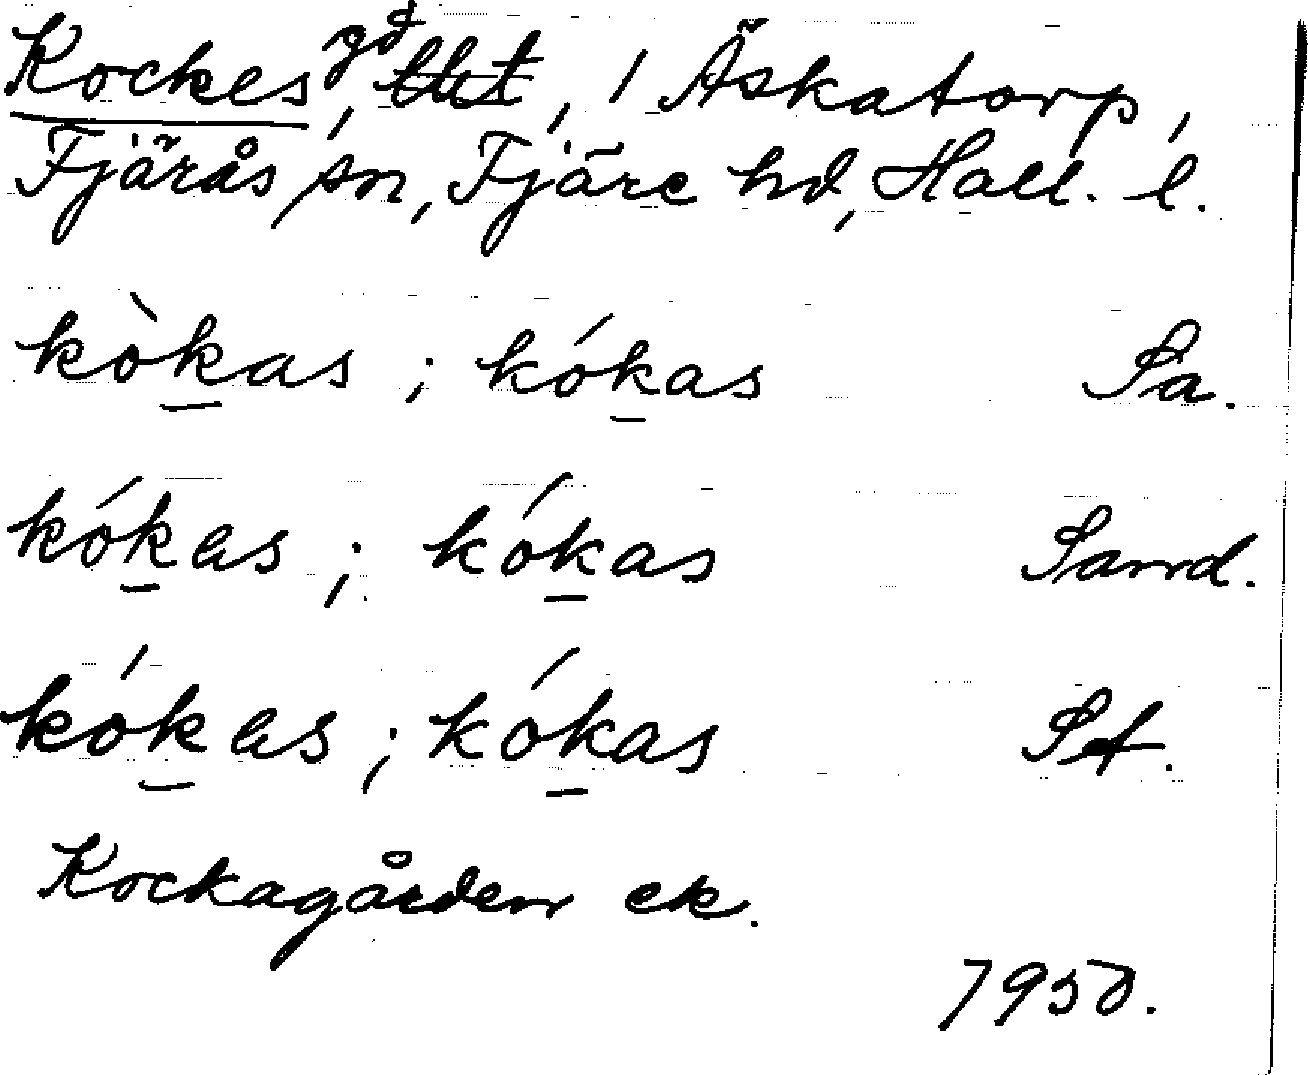 Kockes, gd, i Äskatorp,
Fjärås sn, Fjäre hd, Hall. l.
kòk̲as ; kók̲as Sa.
kók̲as ; kók̲as Sand.
kók̲as ; kók̲as Sf.
Kockagården ek.
1950.